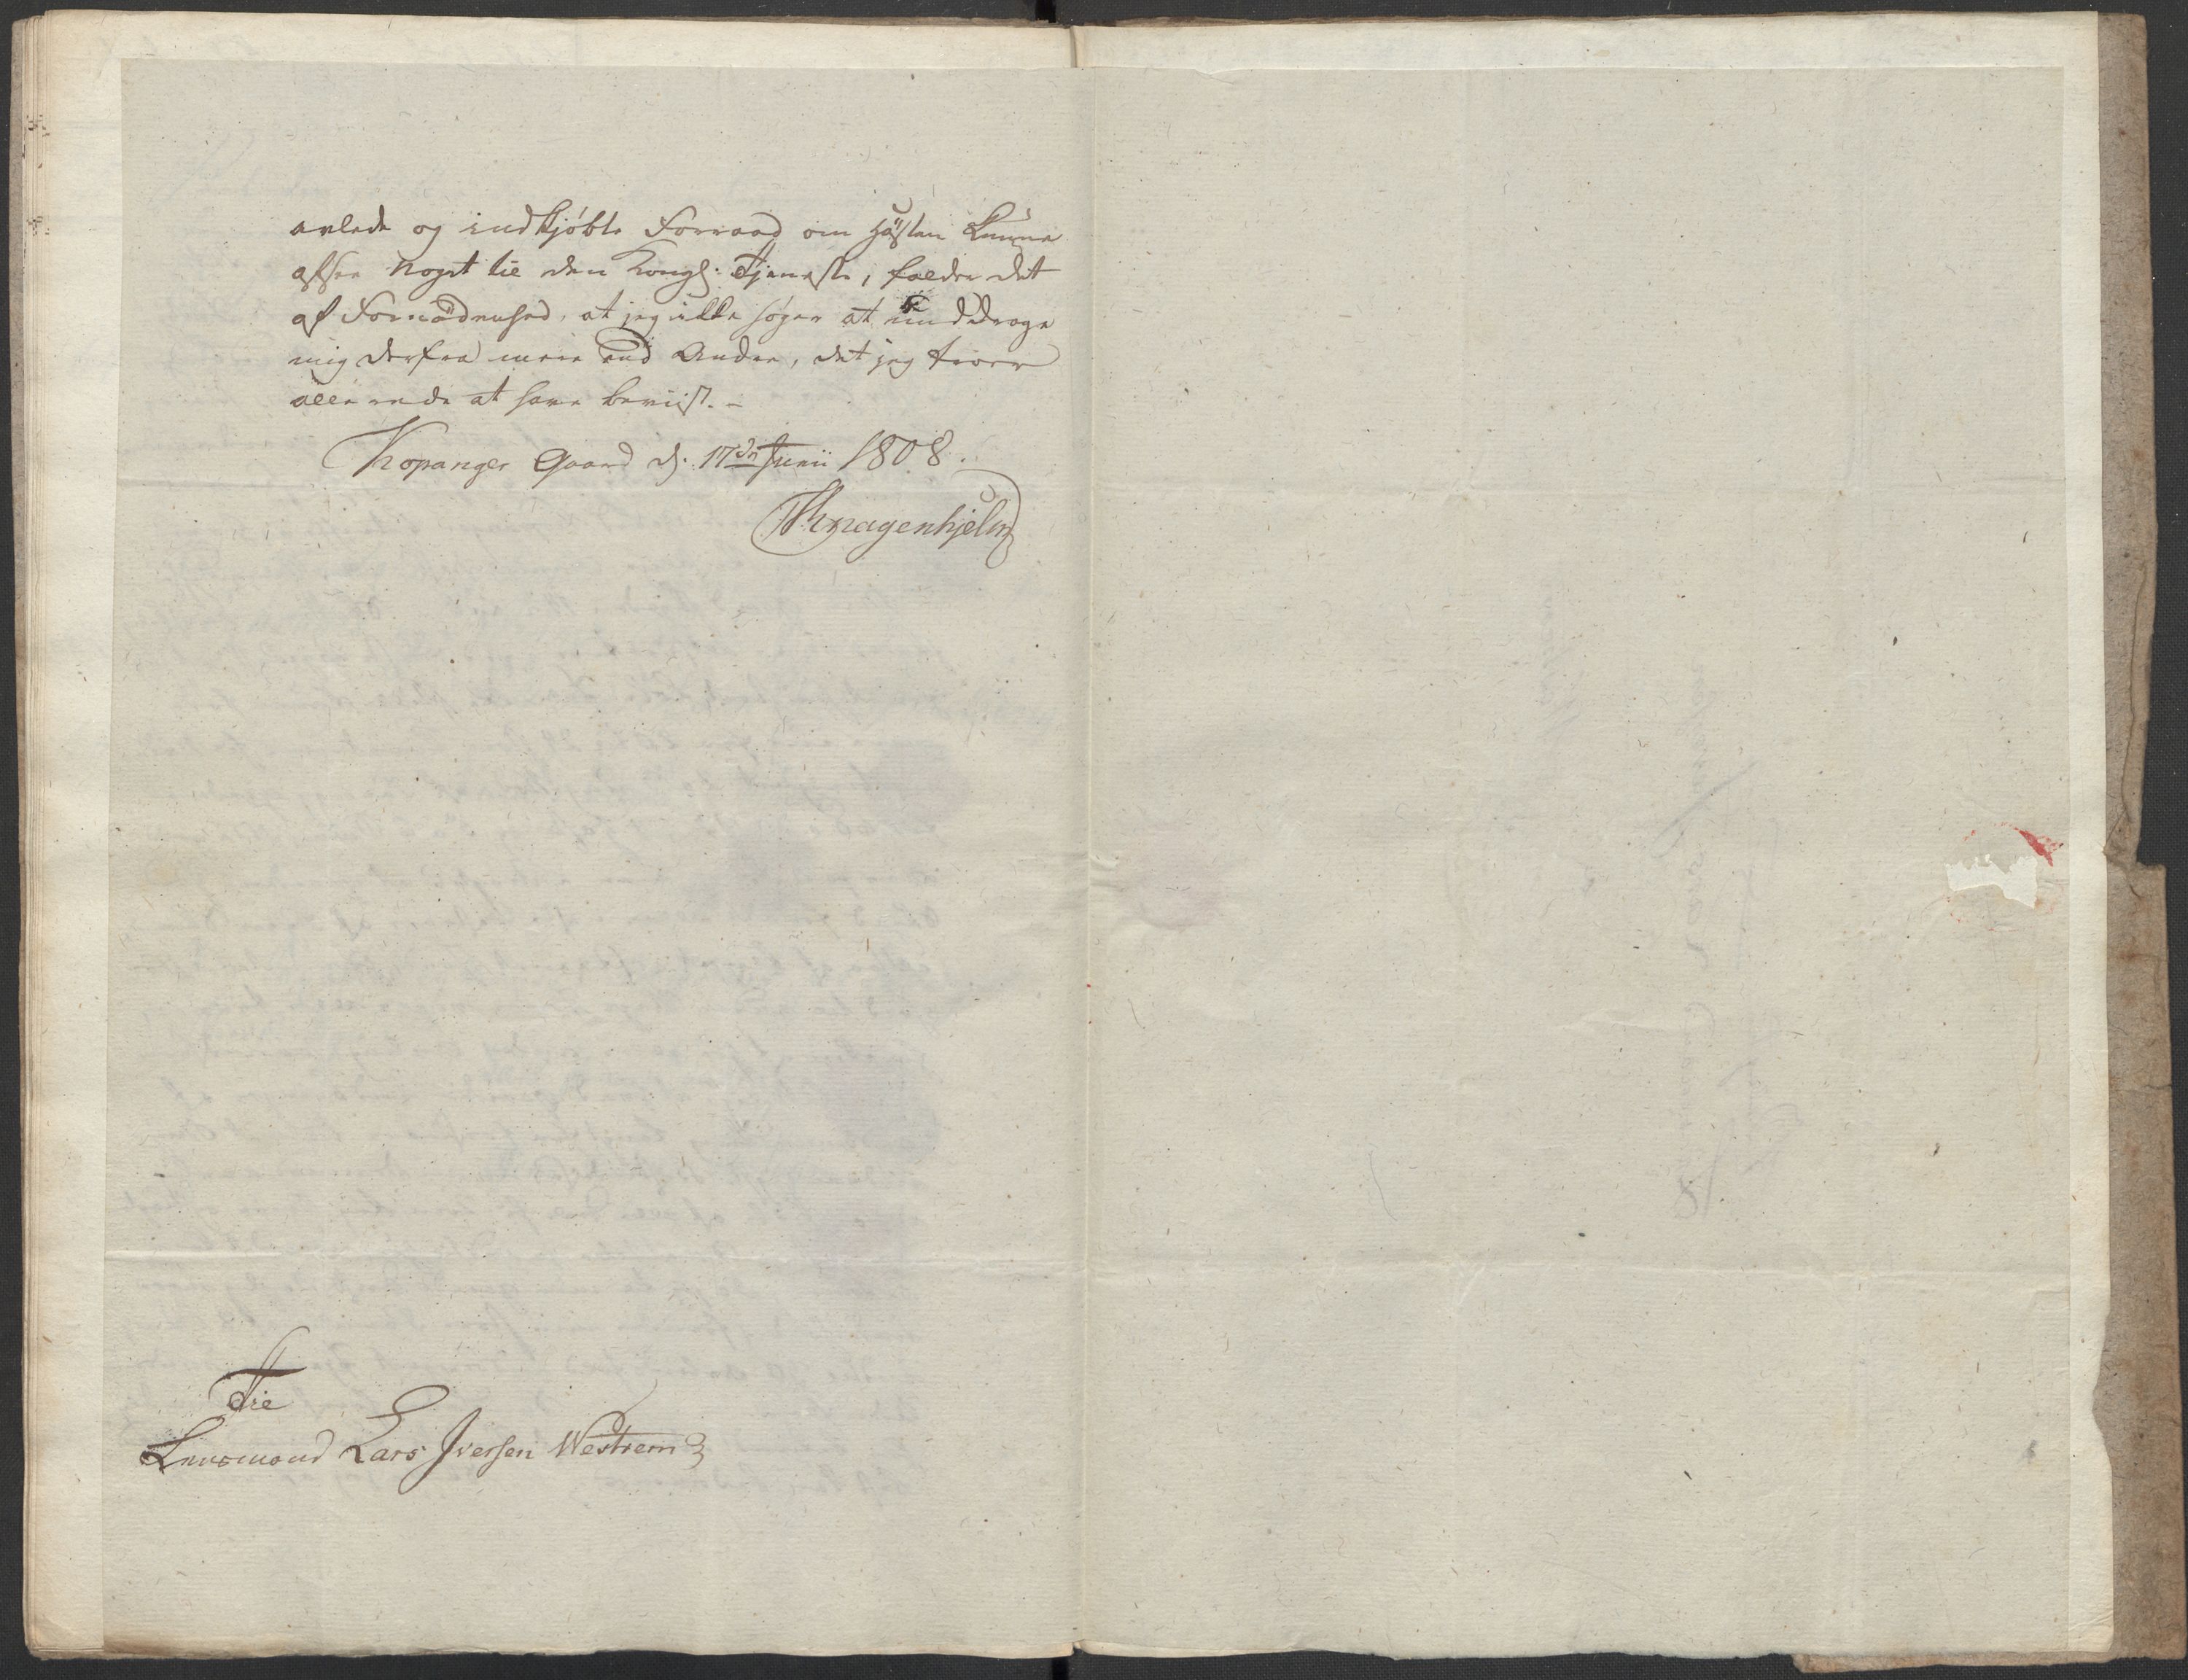 avlede og indkjøbte Forraad om Høsten kunne
afsee noget til den Kongl: Tjeneste, falder det
af Fornødenhed, at jeg ikke søger at unddrage
mig derfra mere end Andre, det jeg troer
allerede at have beviist. –
Kopanger Gaard d. 17de Junii 1808.
Knagenhjelm
Til
Lensmand Lars Iversen Westrem